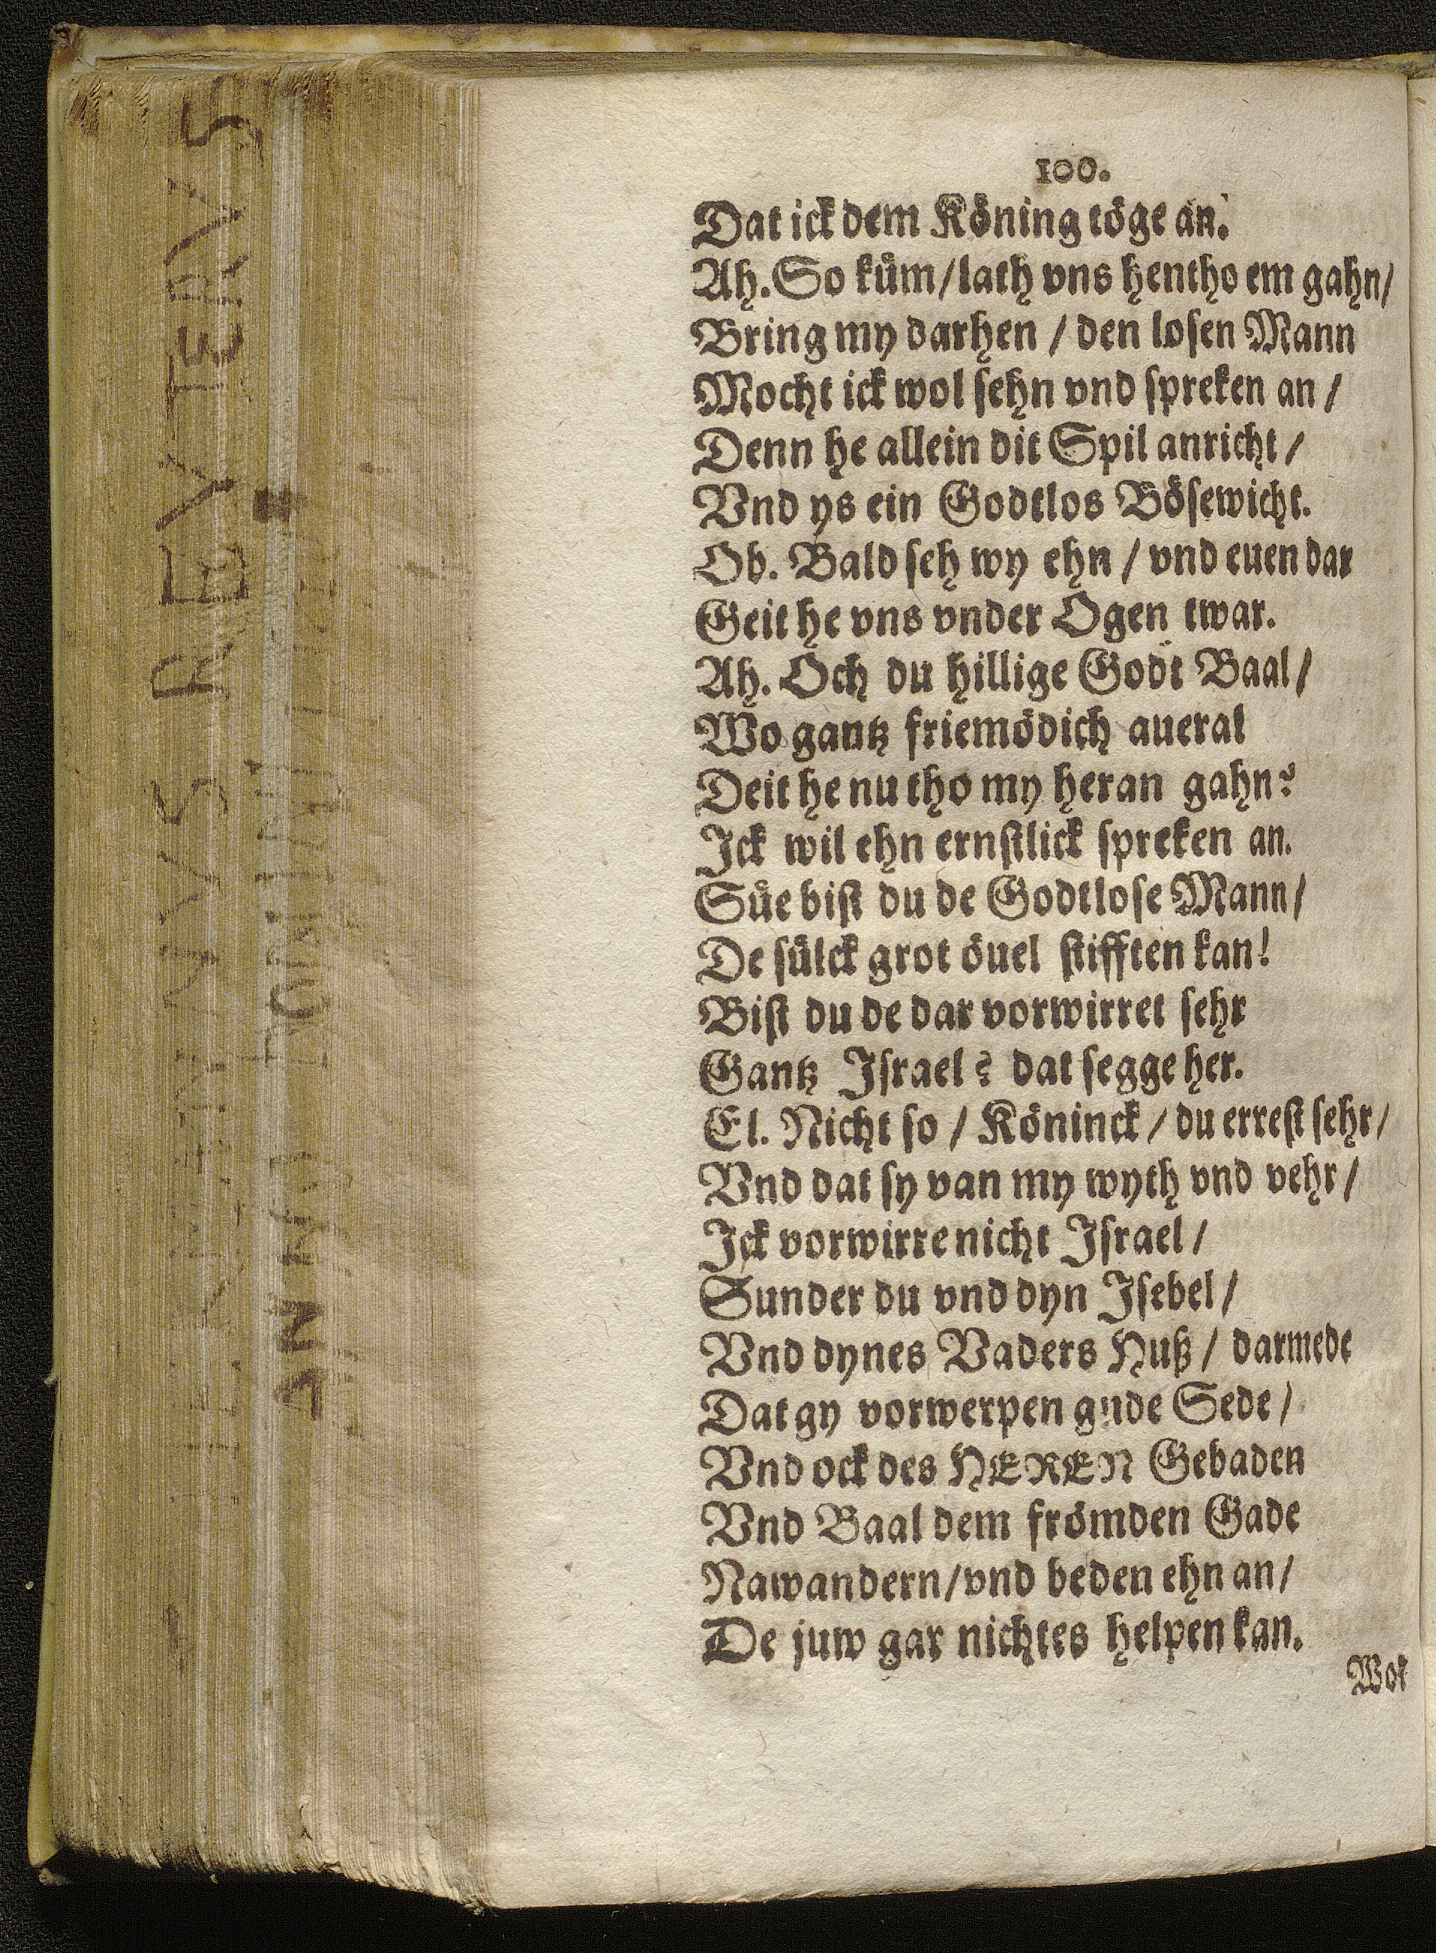 100.
Dat ick dem Köning töge an.
Ah. So küm / lath vns hentho em gahn /
Bring my darhen / den losen Mann
Mocht ick wol sehn vnd spreken an /
Denn he allein dit Spil anricht /
Vnd ys ein Godtlos Bösewicht.
Ob. Bald seh wy ehn / vnd euen dar
Geit he vns vnder Ogen twar.
Ah. Och du hillige Godt Baal /
Wo gantz friemödich aueral
Deit he nu tho my heran gahn?
Ick wil ehn ernstlick spreken an.
Süe bist du de Godtlose Mann /
De sülck grot öuel stifften kan!
Bist du de dar vorwirret sehr
Gantz Israel? dat segge her.
El. Nicht so / Köninck / du errest sehr /
Vnd dat sy van my wyth vnd vehr /
Ick vorwirre nicht Israel /
Sunder du vnd dyn Isebel /
Vnd dynes Vaders Huß / darmede
Dat gy vorwerpen gude Sede /
Vnd ock des HEREN Gebaden
Vnd Baal dem frömden Gade
Nawandern / vnd beden ehn an /
De juw gar nichtes helpen kan.
Wol
REVTERVS
ANNO DOMINI